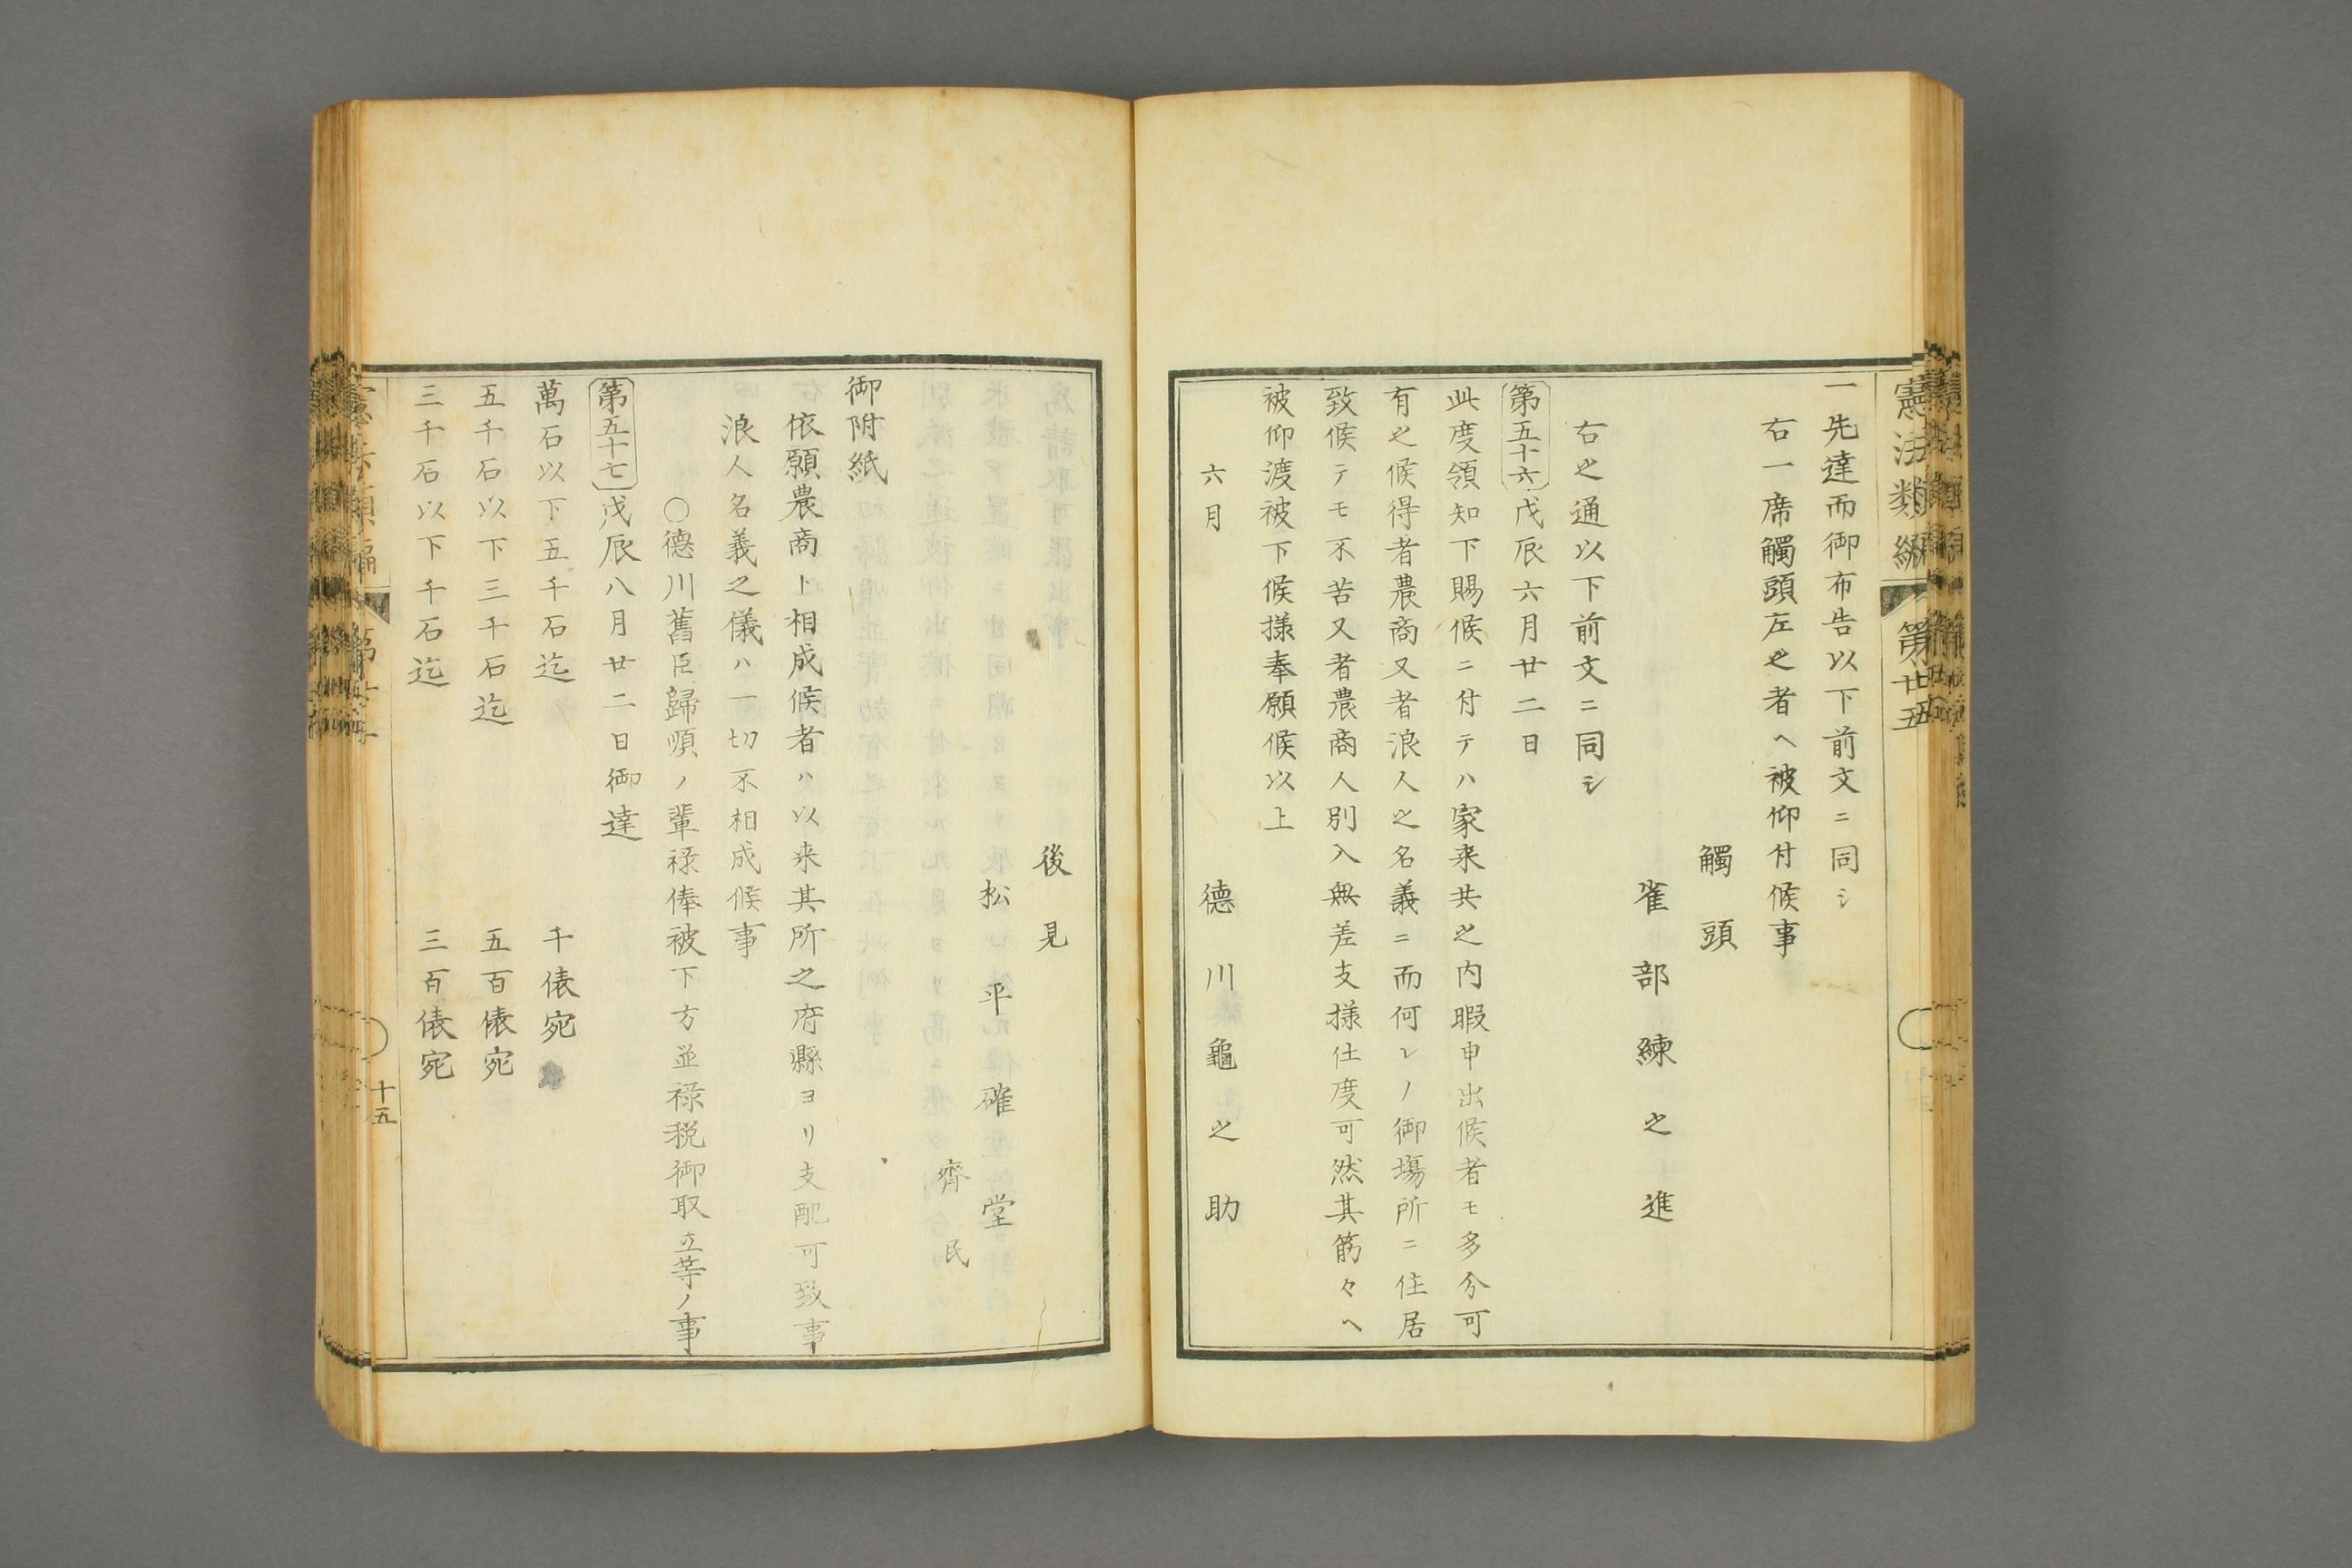 憲法類編 第廿五
一先達而御布告以下前文ニ同シ
右一席觸頭左之者ヘ被仰付候事
觸頭
雀部練之進
右之通以下前文ニ同シ
第五十六 戊辰六月廿二日
此度領知下賜候ニ付テハ家来共之内暇申出候者モ多分可
有之候得者農商又者浪人之名義ニ而何レノ御場所ニ住居
致候テモ不苦又者農商人別入無差支様仕度可然其筋々ヘ
被仰渡被下候様奉願候以上
六月 德川龜之助
後見
松平確堂
齊民
御附紙
依願農商ト相成候者ハ以来其所之府縣ヨリ支配可致事
浪人名義之儀ハ一切不相成候事
○德川舊臣歸順ノ輩祿俸被下方並祿税御取立等ノ事
第五十七 戊辰八月廿二日御達
萬石以下五千石迄 千俵宛
五千石以下三千石迄 五百俵宛
三千石以下千石迄 三百俵宛
十五